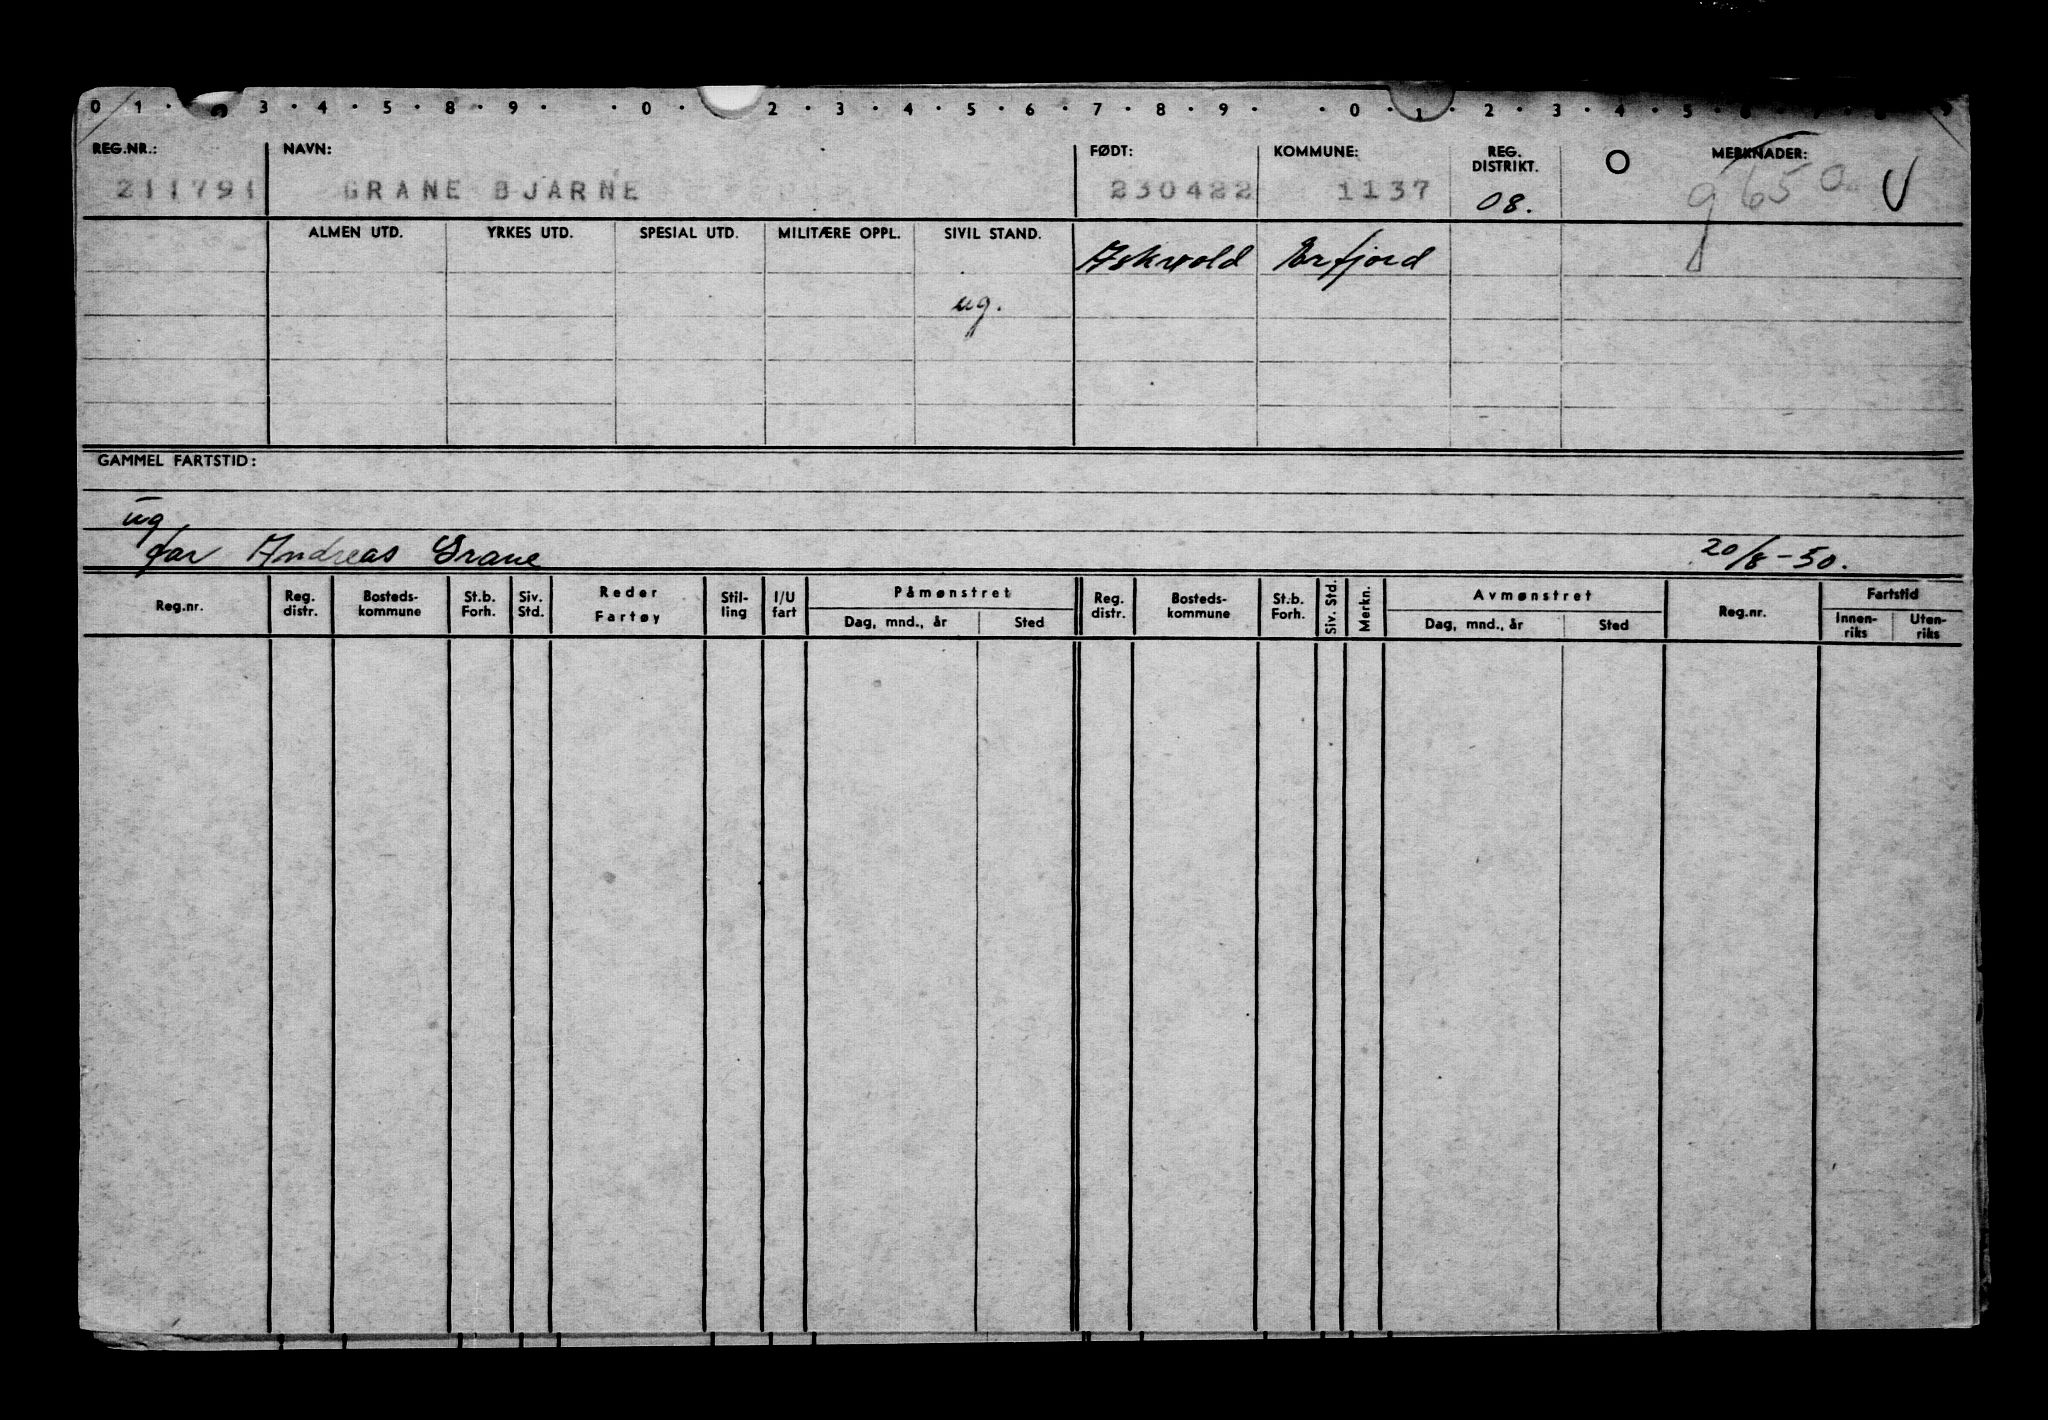 0 1 · 3 · 4 · 5 · 8 · 9 · · 0 · 2 · 3 · 4 · 5 · 6 · 7 · 8 · 9 · · 0 · 1 · 2 · 3 · 4 · 5 · 6 · 7 · 8 · 9
REG.NR.: NAVN: FØDT: KOMMUNE: REG. DISTRIKT. MERKNADER:
211791 GRANE BJARNE 230422 1137 08.
ALMEN UTD. YRKES UTD. SPESIAL UTD. MILITÆRE OPPL. SIVIL STAND. Askvold Erfjord
ug.
GAMMEL FARTSTID:
ug
far Andreas Grane 20/8-50.
Reg.nr. Reg. distr. Bosteds-kommune St.b. Forh. Siv. Std. Reder Fartøy Stil-ling I/U fart Påmønstret Reg. distr. Bosteds-kommune St.b. Forh. Siv. Std. Merkn. Avmønstret Reg.nr. Fartstid
Dag, mnd., år Sted Dag, mnd., år Sted Innen-riks Uten-riks